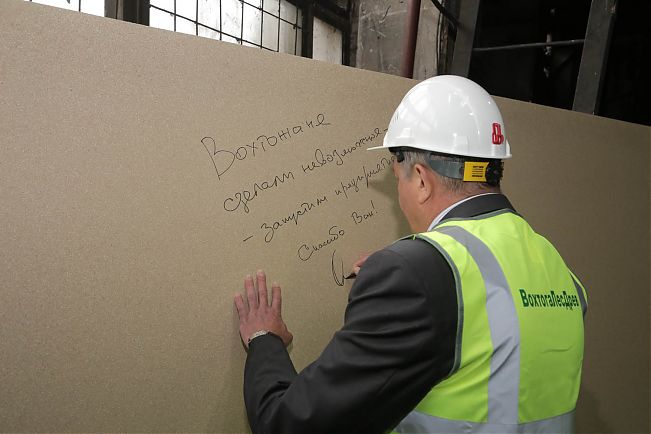 Вохтожане
сделали невозможное
- запустили предприятие
Спасибо Вам!
ВохтогаЛесДрев